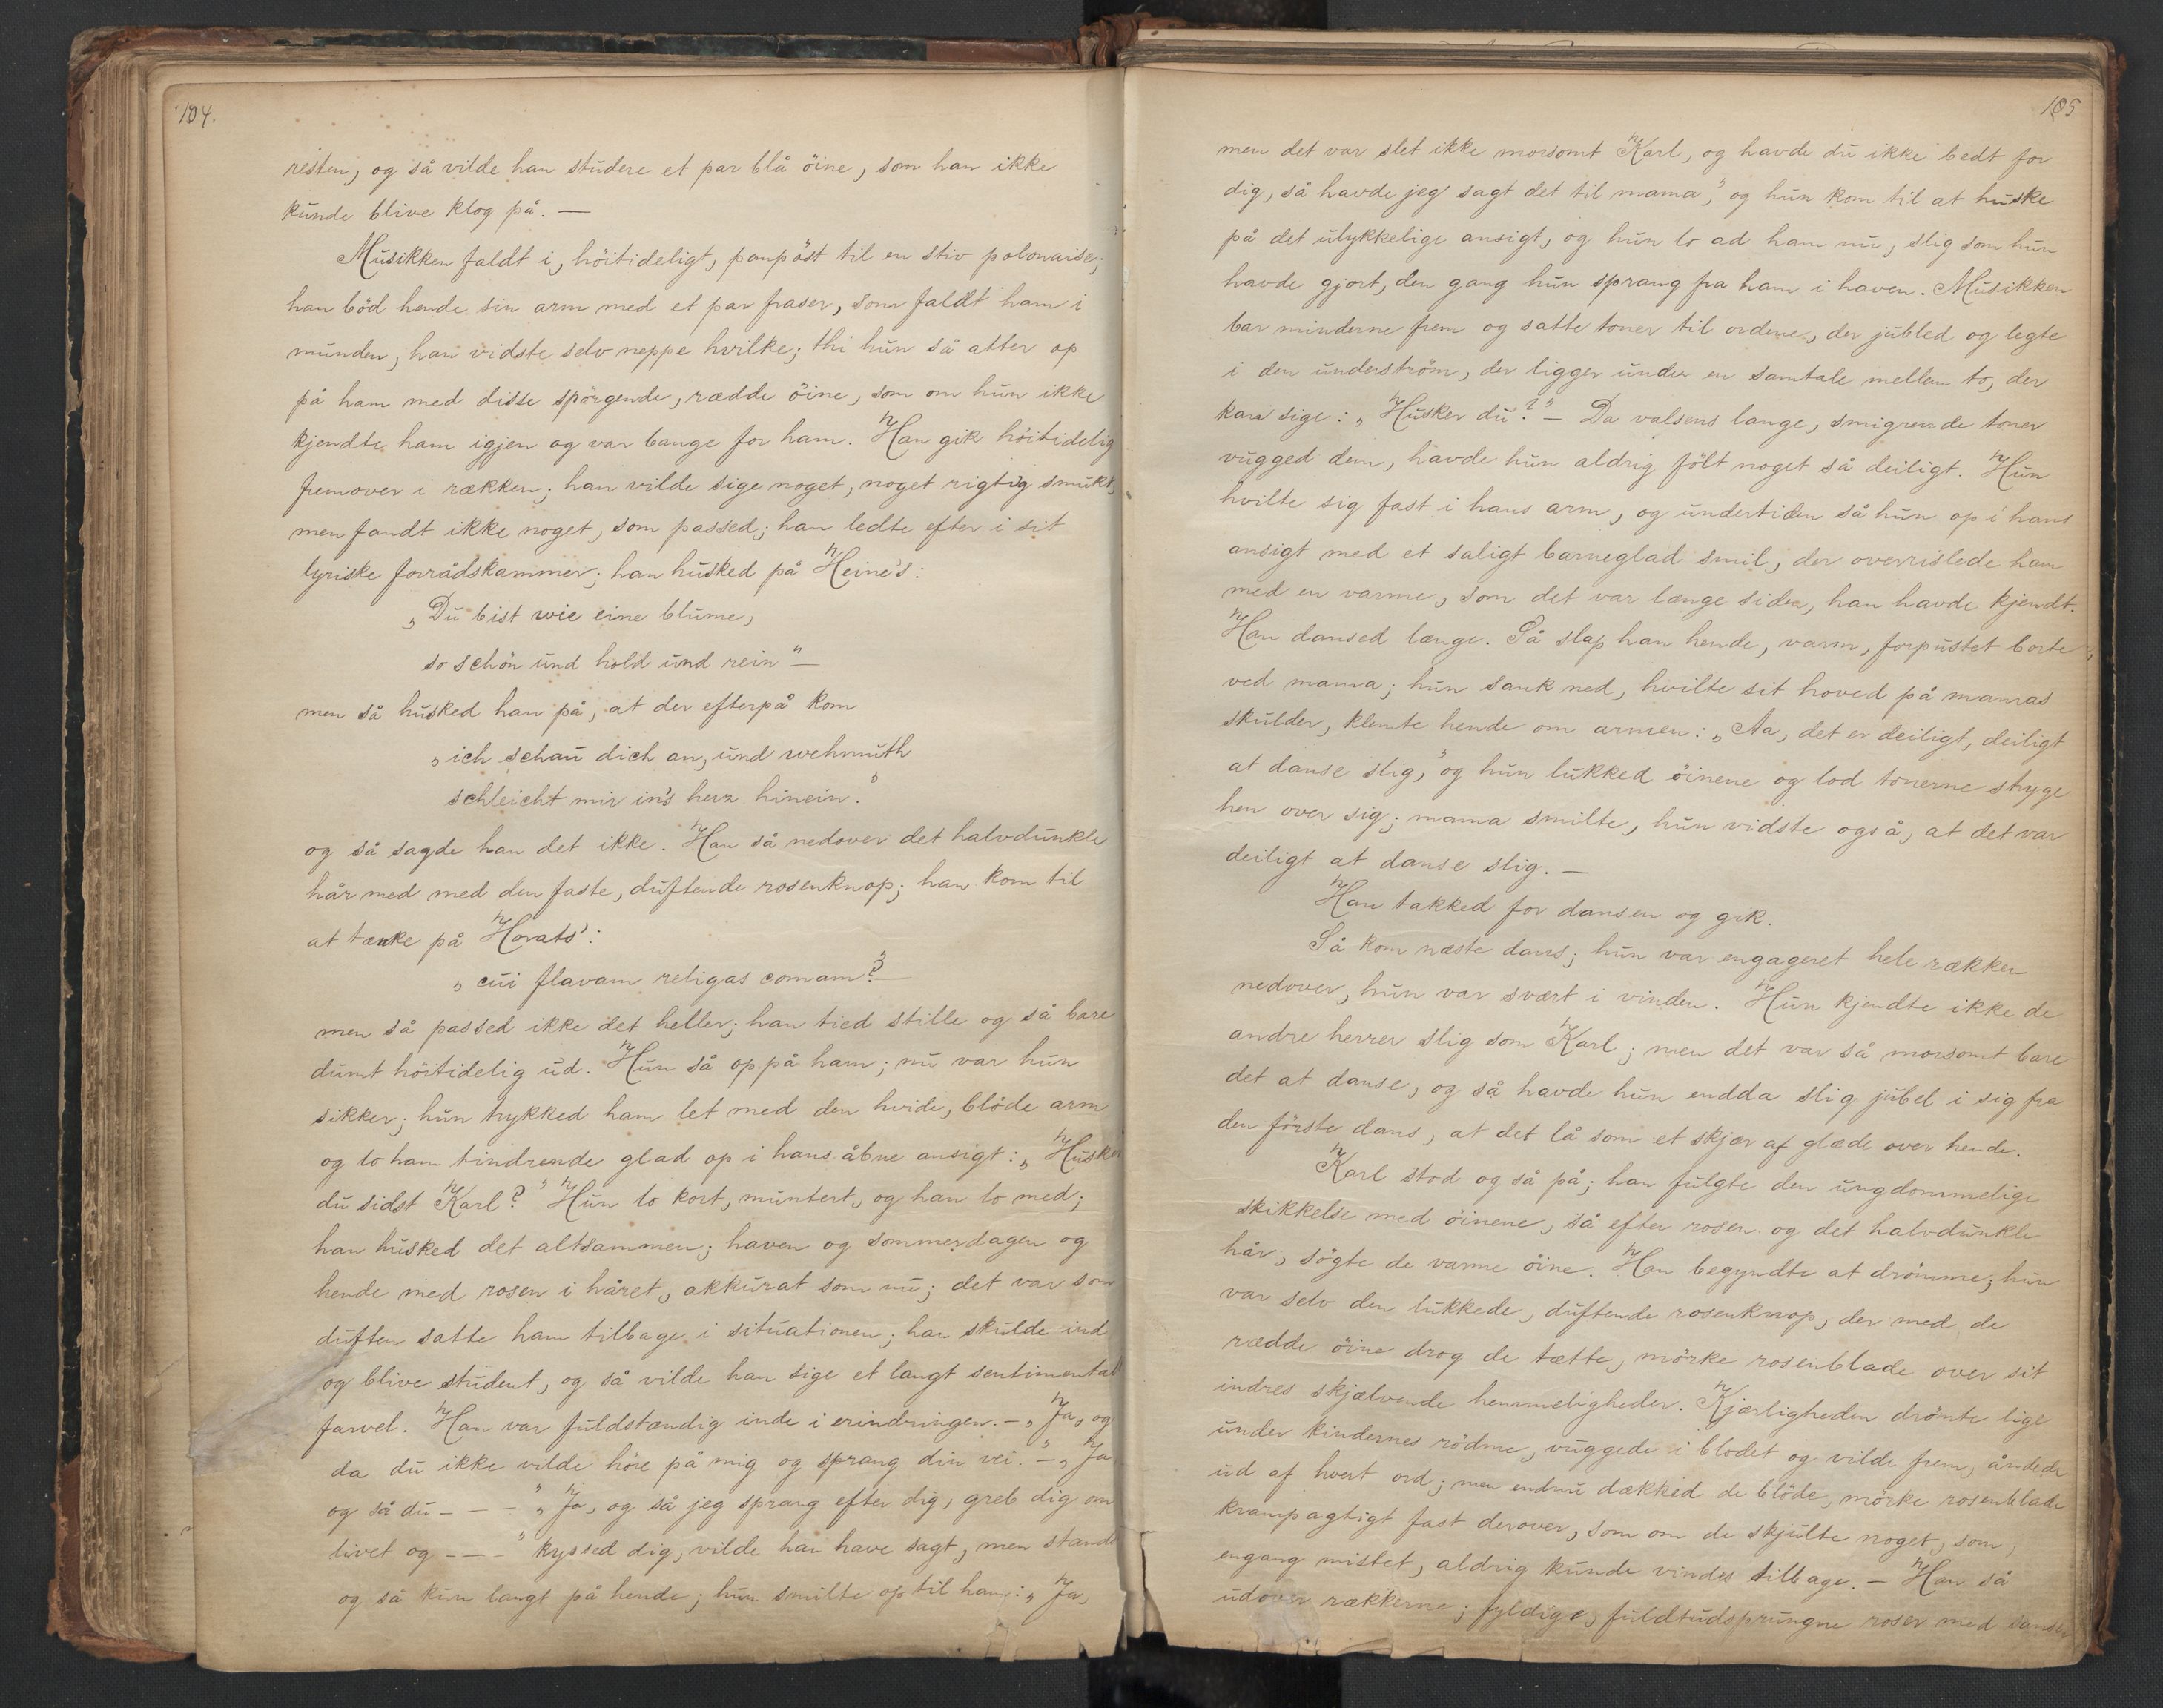 104.
resten, og så vilde han studere et par blå öine, som han ikke
kunde blive klog på. —
Musikken faldt i, höitideligt, pompöst til en stiv polonaise;
han böd hende sin arm med et par fraser, som faldt ham i
munden, han vidste selv neppe hvilke; thi hun så atter op
på ham med disse spörgende, rædde öine, som om hun ikke
kjendte ham igjen og var bange for ham. Han gik höitidelig
fremover i rækken; han vilde sige noget, noget rigtig smukt,
men fandt ikke noget, som passed; han ledte efter i sit
lyriske forrådskammer; han husked på Heine's:
„Du bist wie eine blume,
so schön und hold und rein" —
men så husked han på, at der efterpå kom
„ich schau dich an, und wehmuth
schleicht mir in's herz hinein."
og så sagde han det ikke. Han så nedover det halvdunkle
hår med med den faste, duftende rosenknop; han kom til
at tænke på Horats':
„cui flavam religas comam?" —
men så passed ikke det heller; han tied stille og så bare
dumt höitidelig ud. Hun så op på ham; nu var hun
sikker; hun trykked ham let med den hvide, blöde arm
og lo ham tindrende glad op i hans åbne ansigt: „Husker
du sidst Karl?" Hun lo kort, muntert, og han lo med;
han husked det altsammen; haven og sommerdagen og
hende med rosen i håret, akkurat som nu; det var som
duften satte ham tilbage i situationen; han skulde ind
og blive student, og så vilde han sige et langt sentimental
farvel. Han var fuldstændig inde i erindringen. – „Ja, og
da du ikke vilde höre på mig og sprang din vei." – „Ja
og så du – – – " „Ja, og så jeg sprang efter dig, greb dig om
livet og – – – " kyssed dig, vilde han have sagt, men stands
og så kun langt på hende; hun smilte op til ham: „Ja,
105
men det var slet ikke morsomt Karl, og havde du ikke bedt for
dig, så havde jeg sagt det til mama", og hun kom til at huske
på det ulykkelige ansigt, og hun lo ad ham nu, slig som hun
havde gjort, den gang hun sprang fra ham i haven. Musikken
bar minderne frem og satte toner til ordene, der jubled og legte
i den underström, der ligger under en samtale mellem to, der
kan sige: „Husker du?" – Da valsens lange, smigrende toner
vugged dem, havde hun aldrig fölt noget så deiligt. Hun
hvilte sig fast i hans arm, og undertiden så hun op i hans
ansigt med et saligt barneglad smil, der overrislede ham
med en varme, som det var længe siden, han havde kjendt.
Han dansed længe. Så slap han hende, varm, forpustet borte
ved mama; hun sank ned, hvilte sit hoved på mamas
skulder, klemte hende om armen: „Aa, det er deiligt, deiligt
at danse slig," og hun lukked öinene og lod tonerne stryge
hen over sig; mama smilte, hun vidste også, at det var
deiligt at danse slig. —
Han takked for dansen og gik.
Så kom næste dans; hun var engageret hele rækken
nedover, hun var svært i vinden. Hun kjendte ikke de
andre herrer slig som Karl; men det var så morsomt bare
det at danse, og så havde hun endda slig jubel i sig fra
den förste dans, at det lå som et skjær af glæde over hende.
Karl stod og så på; han fulgte den ungdommelige
skikkelse med öinene, så efter rosen og det halvdunkle
hår, sögte de varme öine. Han begyndte at drömme; hun
var selv den lukkede, duftende rosenknop, der med de
rædde öine drog de tætte, mörke rosenblade over sit
indres skjælvende hemmeligheder. Kjærligheden drömte lige
under kindernes rödme, vuggede i blodet og vilde frem, åndede
ud af hvert ord; men endnu dækked de blöde, mörke rosenblade
krampagtigt fast derover, som om de skjulte noget, som,
engang mistet, aldrig kunde vindes tilbage. – Han så
udover rækkerne; fyldige, fuldtudsprungne roser med